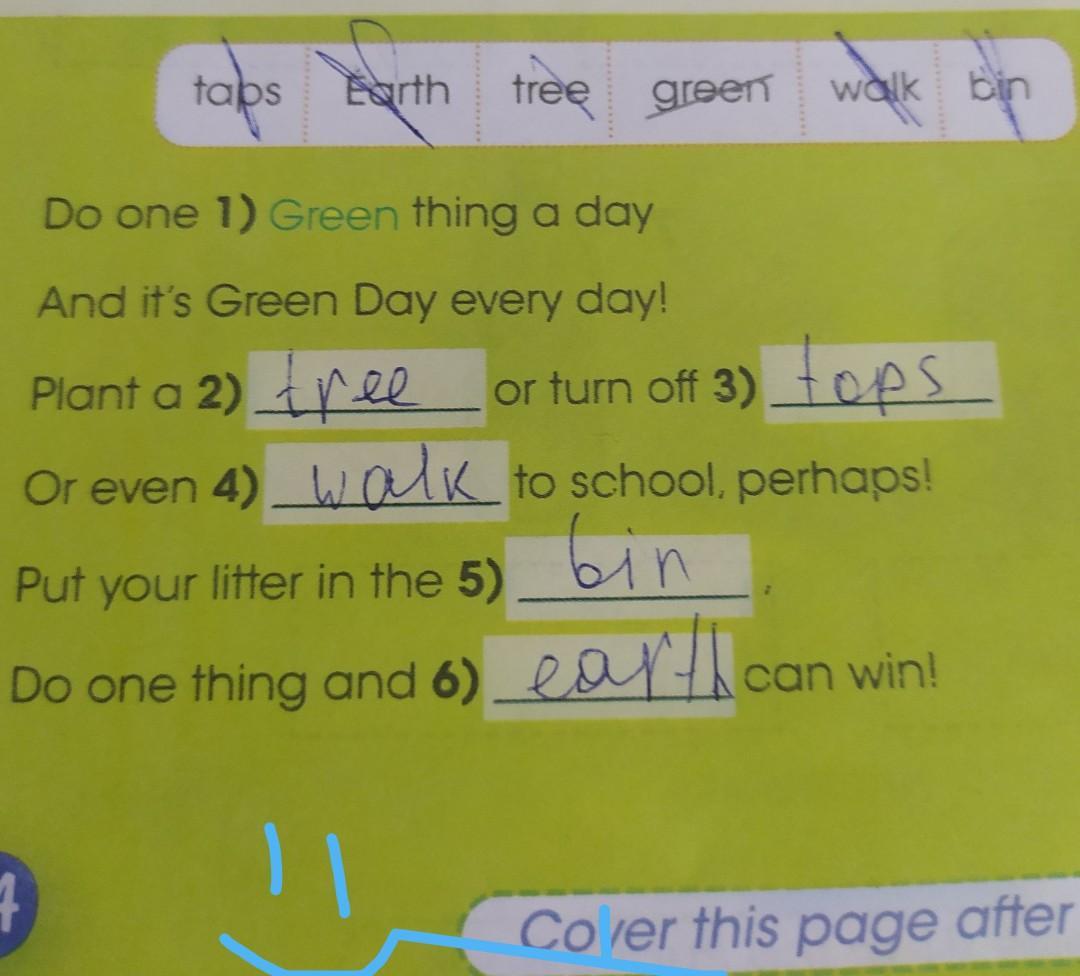 taps Earth tree green walk bin
Do one 1) Green thing a day
And it's Green Day every day!
Plant a 2) tree or turn off 3) taps
Or even 4) walk to school, perhaps!
Put your litter in the 5) bin.
Do one thing and 6) earth can win!
4
Cover this page after